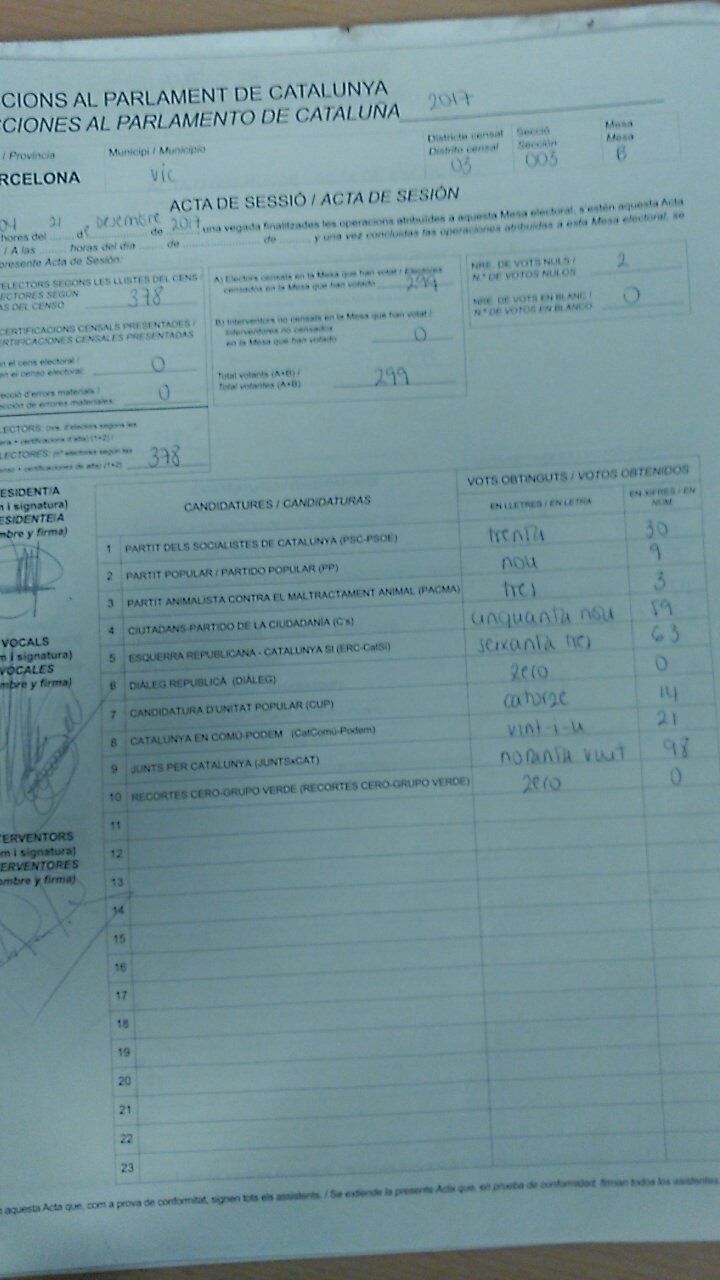 CIONS AL PARLAMENT DE CATALUNYA
CCIONES AL PARLAMENTO DE CATALUÑA 2017
/ Provincia Municipi / Municipio Districte censal Secció Mesa
Distrito censal Sección Mesa
RCELONA Vic 03 003 B
ACTA DE SESSIÓ / ACTA DE SESIÓN
hores del 21 de Desembre de 2017 una vegada finalitzades les operacions atribuïdes a aquesta Mesa electoral, s'estén aquesta Acta
/ A las ........ horas del día ........ de ........ de ........ y una vez concluidas las operaciones atribuidas a esta Mesa electoral, se
presente Acta de Sesión:
ELECTORS SEGONS LES LLISTES DEL CENS
ECTORES SEGÚN
AS DEL CENSO 378
CERTIFICACIONS CENSALS PRESENTADES /
ERTIFICACIONES CENSALES PRESENTADAS
n el cens electoral /
en el censo electoral: 0
recció d'errors materials /
cción de errores materiales: 0
LECTORS: (nre. d'electors segons les
era + certificacions d'alta) (1+2) /
LECTORES: (nº electores según las
enso + certificaciones de alta) (1+2) 378
A) Electors censats en la Mesa que han votat / Electores
censados en la Mesa que han votado 299
B) Interventors no censats en la Mesa que han votat /
Interventores no censados
en la Mesa que han votado 0
Total votants (A+B) /
Total votantes (A+B) 299
NRE. DE VOTS NULS /
N.º DE VOTOS NULOS 2
NRE. DE VOTS EN BLANC /
N.º DE VOTOS EN BLANCO 0
ESIDENT/A
m i signatura)
ESIDENTE/A
mbre y firma)
VOCALS
m i signatura)
VOCALES
mbre y firma)
TERVENTORS
m i signatura)
ERVENTORES
ombre y firma)
CANDIDATURES / CANDIDATURAS VOTS OBTINGUTS / VOTOS OBTENIDOS
EN LLETRES / EN LETRA EN XIFRES / EN NÚM.
1 PARTIT DELS SOCIALISTES DE CATALUNYA (PSC-PSOE) trenta 30
2 PARTIT POPULAR / PARTIDO POPULAR (PP) nou 9
3 PARTIT ANIMALISTA CONTRA EL MALTRACTAMENT ANIMAL (PACMA) tres 3
4 CIUTADANS-PARTIDO DE LA CIUDADANÍA (C's) cinquanta nou 59
5 ESQUERRA REPUBLICANA - CATALUNYA SI (ERC-CatSI) seixanta tres 63
6 DIÀLEG REPUBLICA (DIÀLEG) zero 0
7 CANDIDATURA D'UNITAT POPULAR (CUP) catorze 14
8 CATALUNYA EN COMÚ-PODEM (CatComú-Podem) vint-i-u 21
9 JUNTS PER CATALUNYA (JUNTSxCAT) noranta vuit 98
10 RECORTES CERO-GRUPO VERDE (RECORTES CERO-GRUPO VERDE) zero 0
11
12
13
14
15
16
17
18
19
20
21
22
23
aquesta Acta que, com a prova de conformitat, signen tots els assistents. / Se extiende la presente Acta que, en prueba de conformidad, firman todos los asistentes.